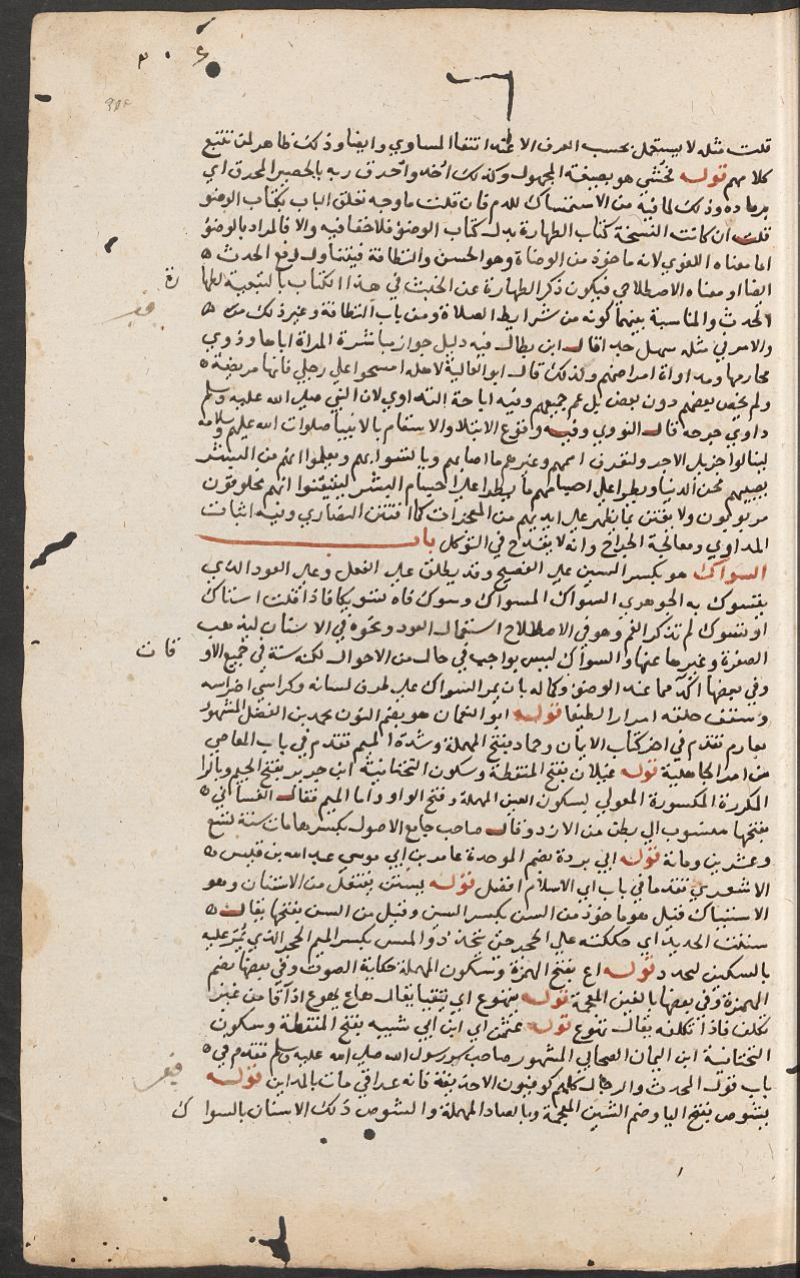 ٣٠٤
قلت مثله لا يستعمل بحسب العرف الا عند انتفا المساوي وايضا وذلك ظاهر لمن تتبع
كلامهم قوله فحشي هو بصيغة المجهول وكذلك اخذ واحرق ربه بالحصير المحرق اي
برماده وذلك لما فيه من الاستمساك للدم فان قلت ما وجه تعلق الباب بكتاب الوضو
قلت ان كانت النسخة كتاب الطهارة بدل كتاب الوضو فلا خفا فيه والا فالمراد بالوضو
اما معناه اللغوي لانه ماخوذ من الوضاة وهو الحسن والنظافة فيتناول رفع الحدث
ايضا او معناه الاصطلاحي فيكون ذكر الطهارة عن الخبث في هذا الكتاب بالتبعية لطها
رة
الحدث والمناسبة بينهما كونه من شرايط الصلاة ومن باب النظافة وغير ذلك
والامر في مثله سهل جدا قال ابن بطال فيه دليل جواز مباشرة المراة اباها وذوي
محارمها ومداواة امراضهم وكذلك قال ابو العالية لاهله امسحوا علي رجلي فانها مريضة
ولم يخص بعضهم دون بعض بل عم جميعهم وفيه اباحة التداوي لان النبي صلى الله عليه وسلم
داوي جرحه قال النووي وفيه وقوع الابتلا والاسقام بالانبيا صلوات الله عليهم وسلامه
لينالوا جزيل الاجر ولتعرف اممهم وغيرهم ما اصابهم وياتسوا بهم وليعلموا انهم من البشر
يصيبهم محن الدنيا ويطرا علي اجسامهم ما يطرا علي اجسام البشر ليتيقنوا انهم مخلوقون
مربوبون ولا يفتتن بما يظهر علي ايديهم من المعجزات كما افتتن النصاري وفيه اثبات
المداوي ومعالجة الجراح وانه لا يقدح في التوكل باب
السواك هو بكسر السين علي الفصيح وقد يطلق علي الفعل وعلي العود الذي
يتسوك به الجوهري السواك المسواك وسوك فاه تسويكا فاذا قلت استاك
او تسوك لم تذكر الفم وهو في الاصطلاح استعمال العود ونحوه في الاسنان ليذهب
الصفرة وغيرها عنها والسواك ليس بواجب في حال من الاحوال لكنه سنة في جميع الاو
قات
وفي بعضها اكد مما عند الوضو وكماله بان يمر السواك علي طرف لسانه وكراسي اضراسه
وسقف حلقه امرارا لطيفا قوله ابو النعمان هو بضم النون محمد بن الفضل المشهور
بعارم تقدم في اخر كتاب الايمان وحماد بفتح المهملة وشدة الميم تقدم في باب المعاصي
من امر الجاهلية قوله غيلان بفتح المنقطة وسكون التحتانية ابن جرير بفتح الجيم وبالرا
المكررة المكسورة المعولي بسكون العين المهملة وفتح الواو واما الميم فقال الغساني
بفتحها منسوب الي بطن من الازد وقال صاحب جامع الاصول بكسرها مات سنة تسع
وعشرين وماية قوله ابي بردة بضم الموحدة عامر بن ابي موسي عبد الله بن قيس
الاشعري تقدما في باب اي الاسلام افضل قوله يستن يفتعل من الاستنان وهو
الاستياك قيل هو ماخوذ من السن بكسر السين وقيل من السن بفتحها يقال
سننت الحديد اي حككته علي الحجر حتي تتحدد والمسن بكسر الميم الحجر الذي يمر عليه
بالسكين ليحدد قوله اع بفتح الهمزة وسكون المهملة حكاية الصوت وفي بعضها بضم
الهمزة وفي بعضها بالغين المعجمة قوله يتهوع اي يتقيا يقال هاع يهوع اذا قا من غير
تكلف فاذا تكلفه يقال تهوع قوله عثمن اي ابن ابي شيبه بفتح المنقطة وسكون
التحتانية ابن اليمان الصحابي المشهور صاحب سر رسول الله صلى الله عليه وسلم تقدم في
باب قول المحدث والرجال كلهم كوفيون الا حذيفة فانه عراقي مات بالمداين قوله
يشوص بفتح اليا وضم الشين المعجمة وبالصاد المهملة والشوص دلك الاسنان بالسواك